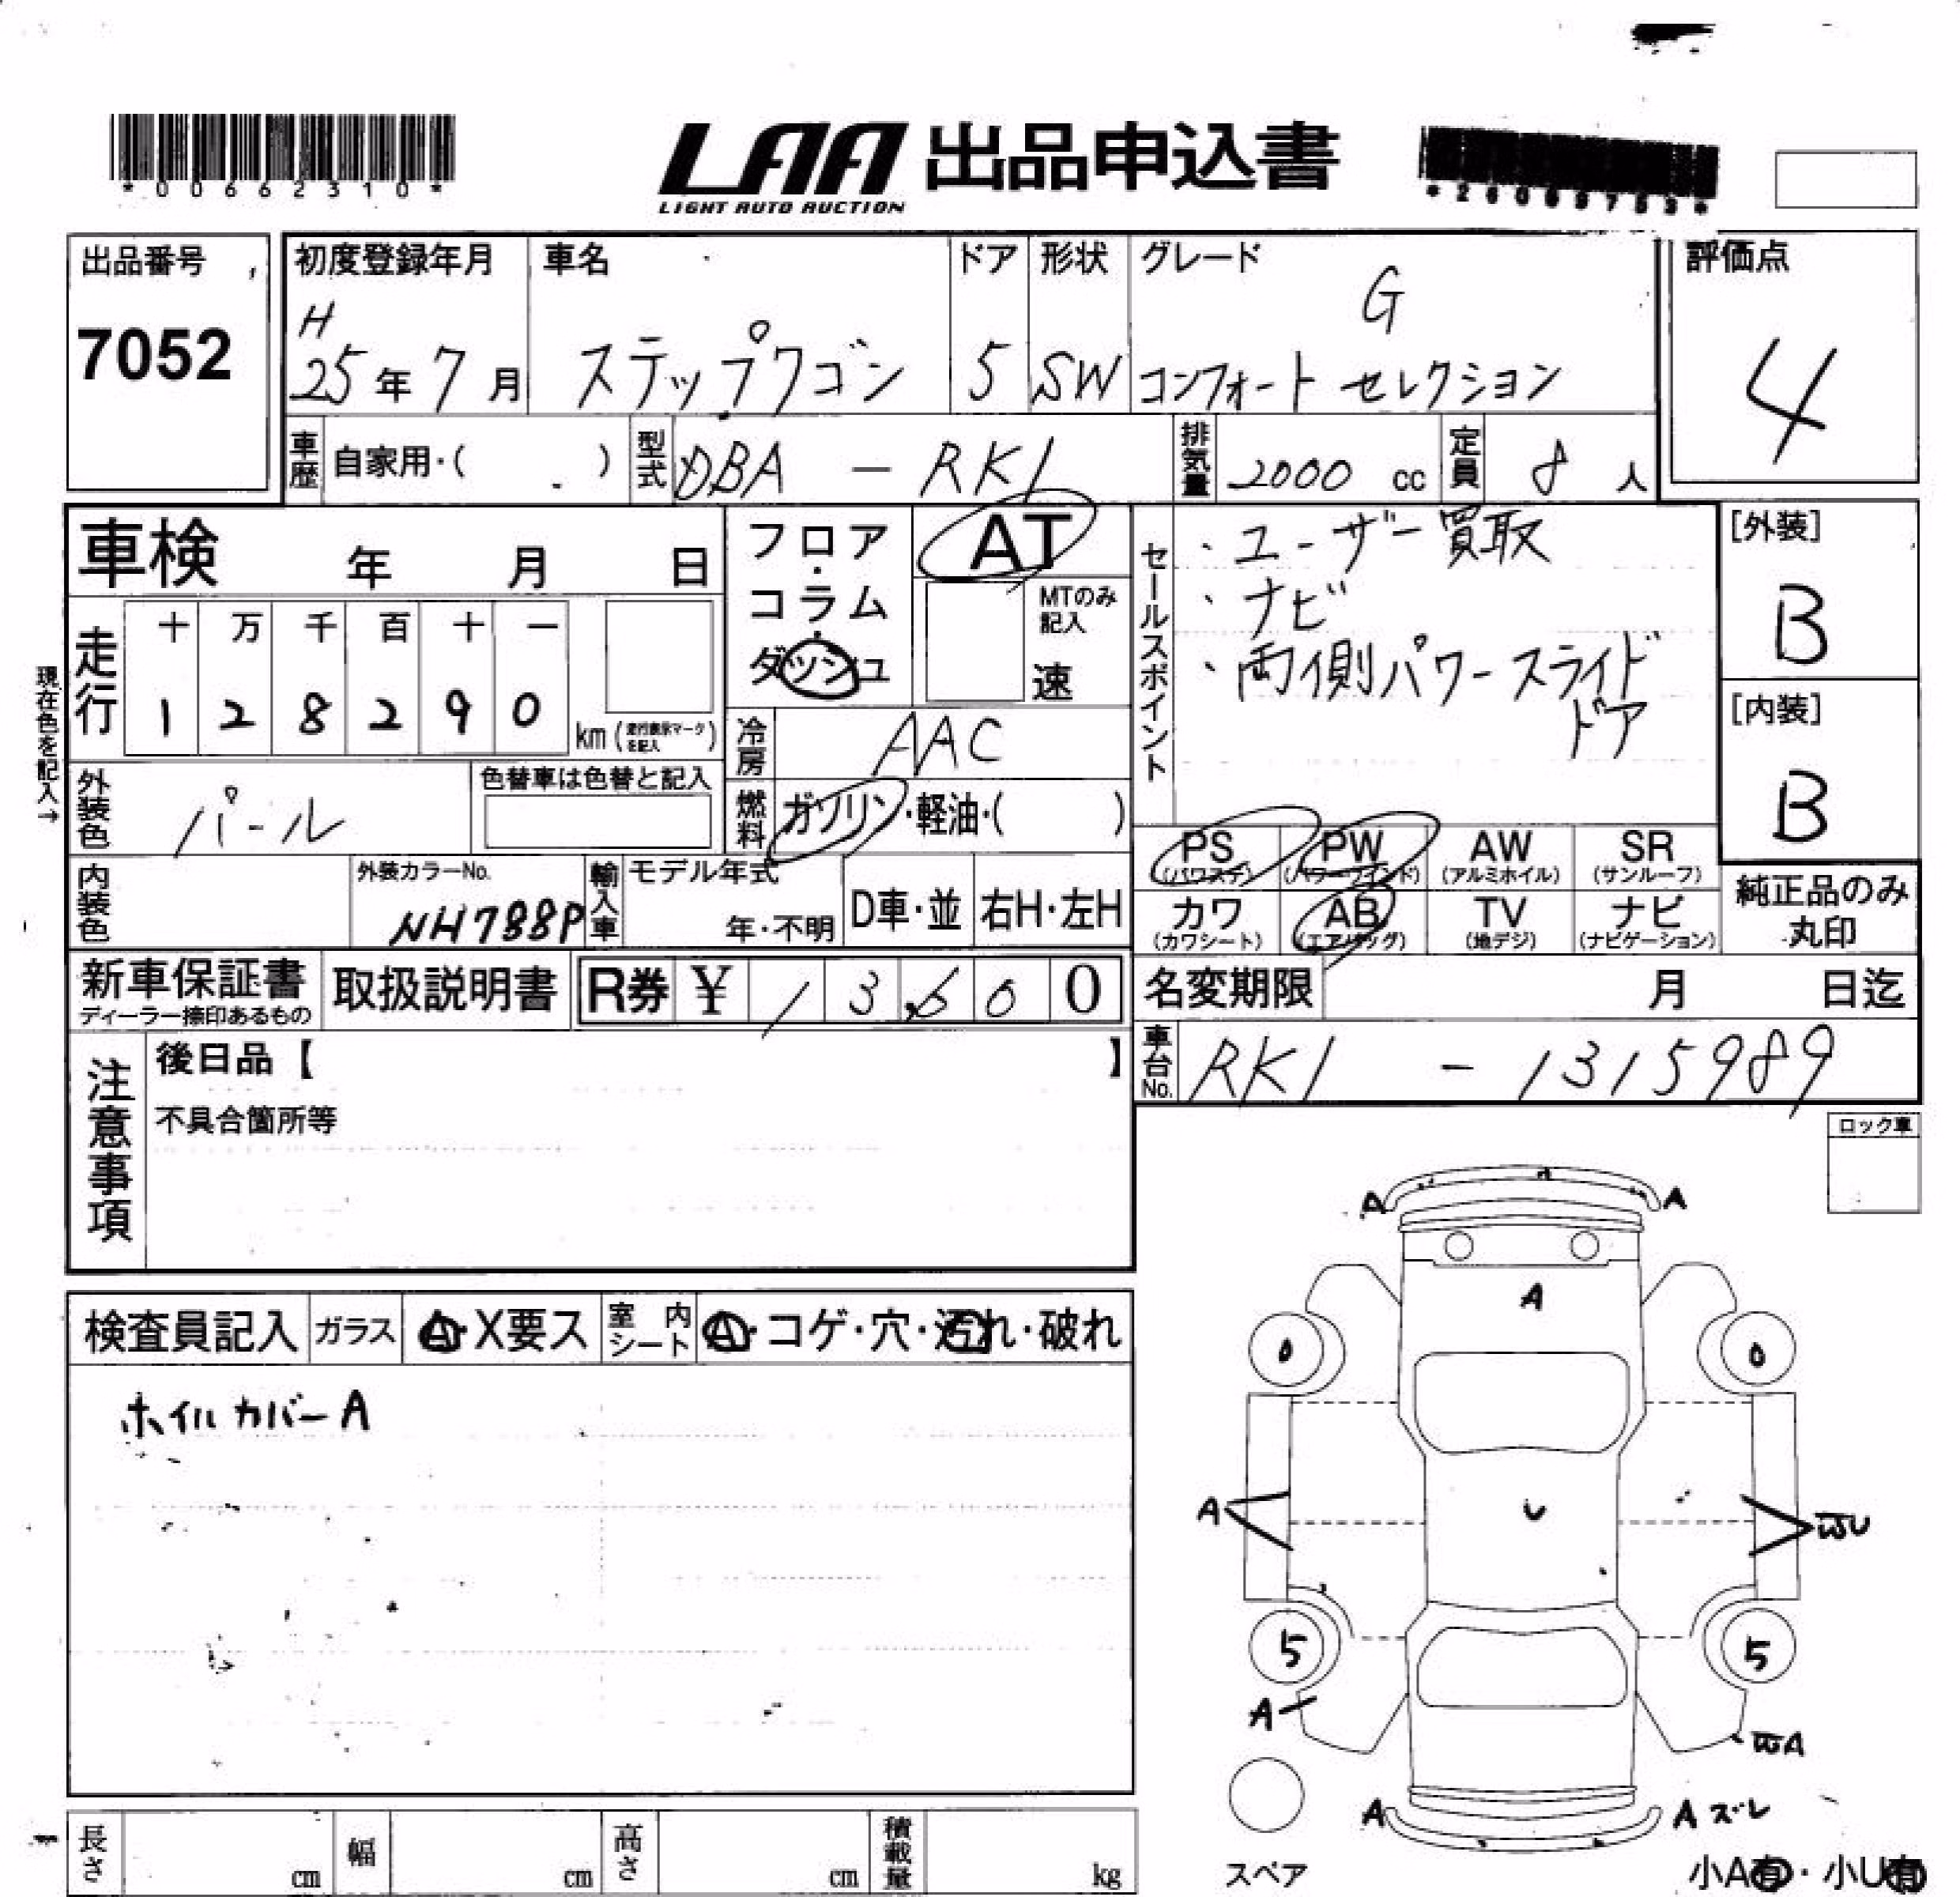 *00662310*
LAA 出品申込書
LIGHT AUTO AUCTION
出品番号 初度登録年月 車名 ドア 形状 グレード 評価点
7052
H 25年 7月 ステップワゴン 5 SW G
コンフォート セレクション
4
車歴 自家用・( ) 型式 DBA - RK1 排気量 2000 cc 定員 8 人
車検 年 月 日
フロア・コラム・ダッシュ AT
MTのみ記入
速
セールスポイント
・ユーザー買取
・ナビ
・両側パワースライド
ドア
[外装]
B
[内装]
B
現在色を記入→
走行 十 万 千 百 十 一
1 2 8 2 9 0 km
冷房 AAC
外装色 パール 色替車は色替と記入
燃料 ガソリン・軽油・( )
PS (パワステ) PW (パワーウインド) AW (アルミホイル) SR (サンルーフ)
カワ (カワシート) AB (エアバッグ) TV (地デジ) ナビ (ナビゲーション)
純正品のみ
丸印
内装色 外装カラーNo. NH788P 輸入車 モデル年式 年・不明 D車・並 右H・左H
新車保証書 取扱説明書 R券 ¥ 1 3,6 0 0
ディーラー捺印あるもの
名変期限 月 日迄
車台No. RK1 - 1315989
注意事項
後日品【 】
不具合箇所等
ロック車
検査員記入 ガラス A・X要ス 室内シート A・コゲ・穴・汚れ・破れ
ホイルカバーA
A A
A
A U WU
5 5
A WA
A A ズレ
スペア
小A有・小U有
長さ cm 幅 cm 高さ cm 積載量 kg